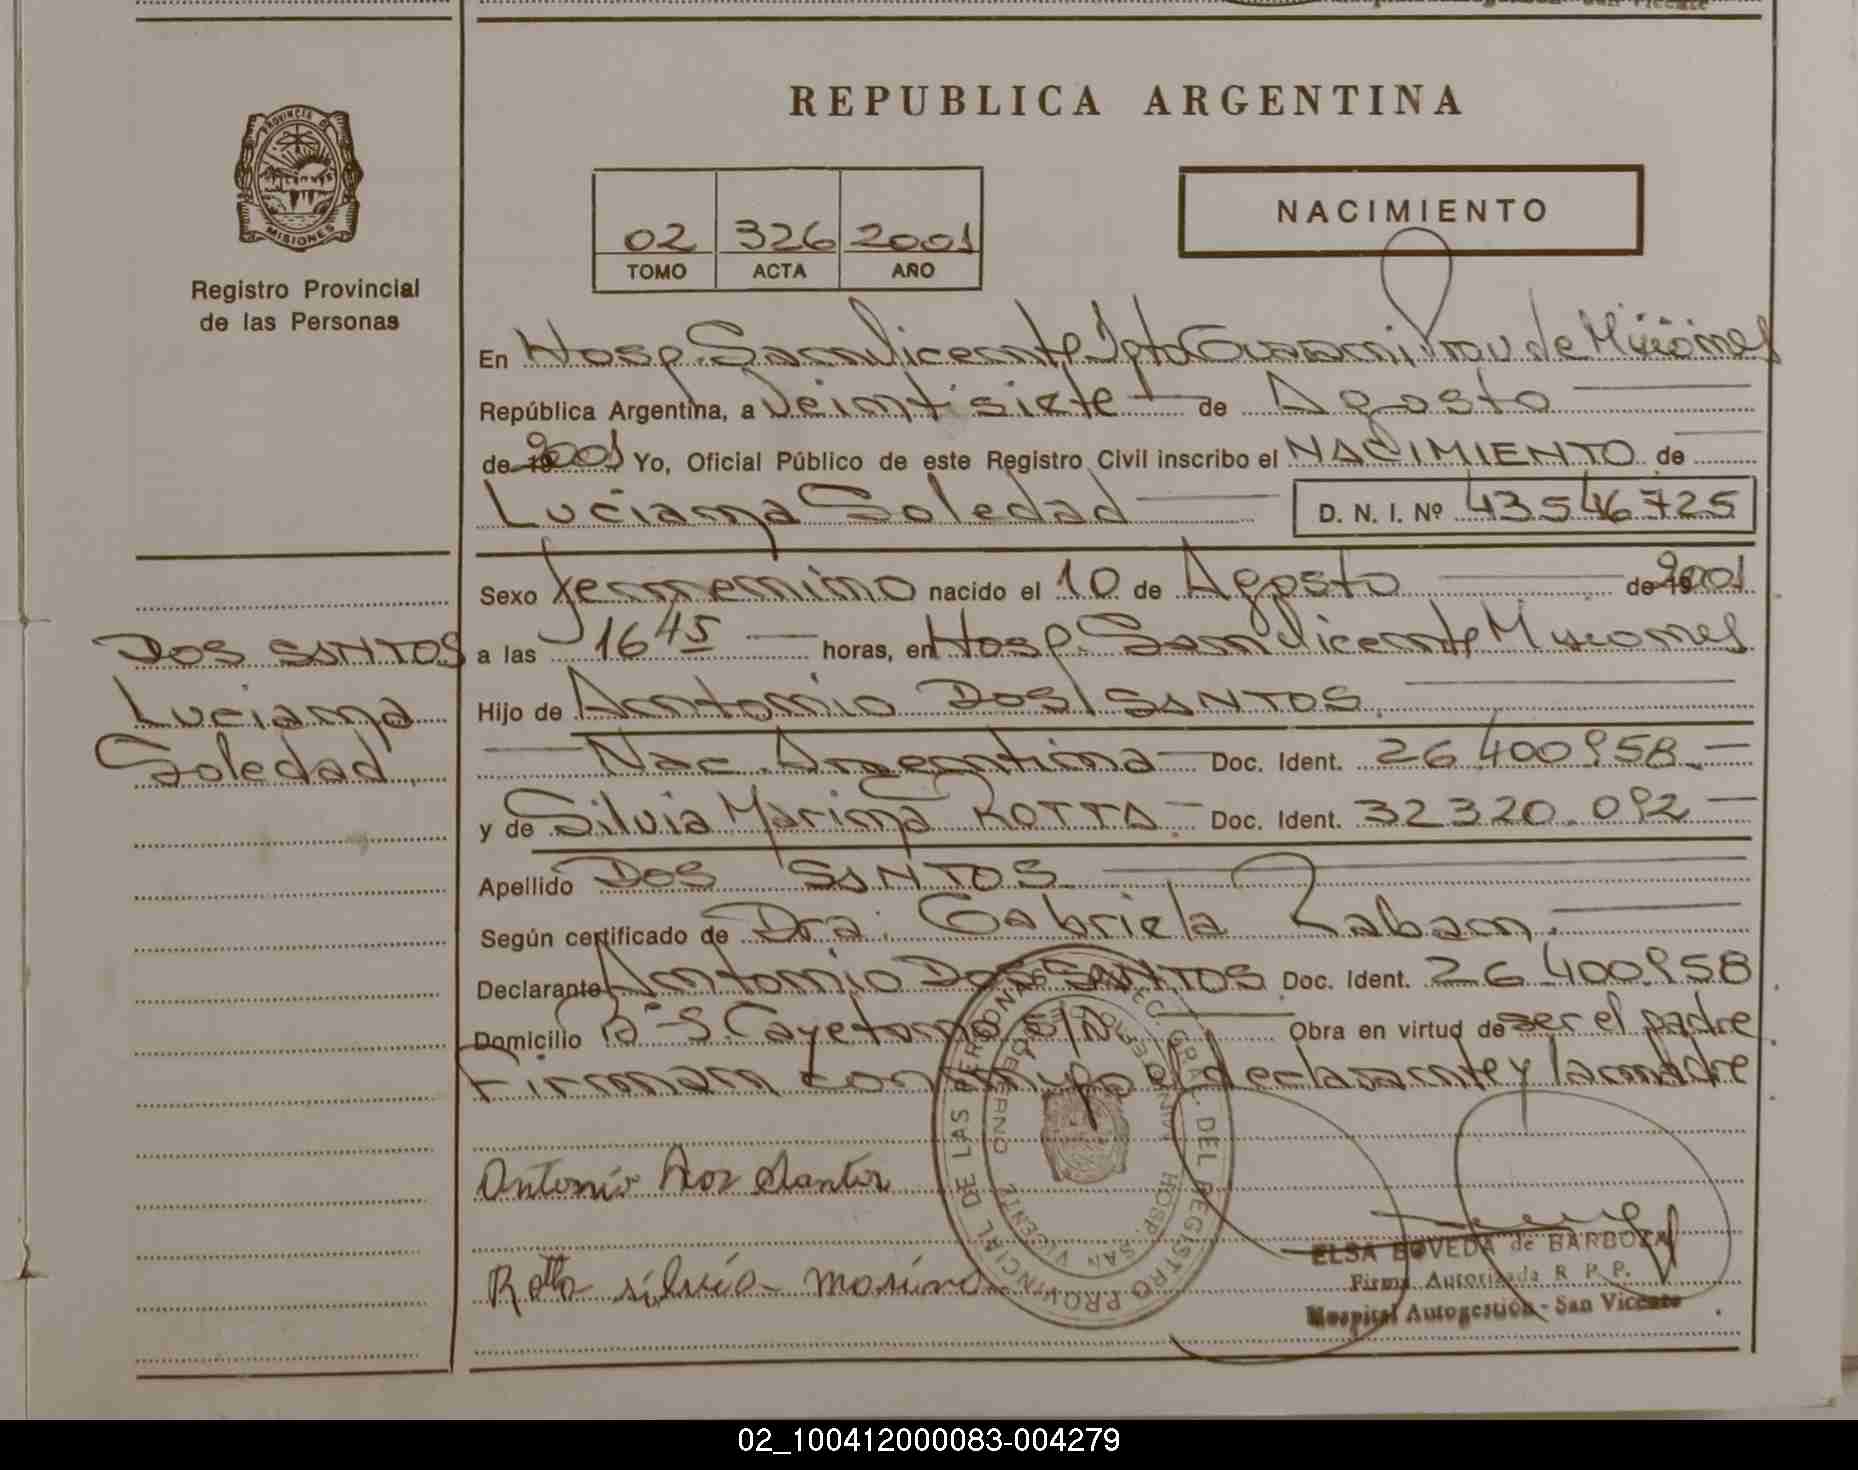 REPUBLICA ARGENTINA
PROVINCIA DE
MISIONES
Registro Provincial
de las Personas
02 326 2001
TOMO ACTA AÑO
NACIMIENTO
En Hosp. San Vicente Dpto Guarani Prov de Misiones
República Argentina, a Veintisiete de Agosto
de 19 2001 Yo, Oficial Público de este Registro Civil inscribo el NACIMIENTO de
Luciana Soledad D. N. I. Nº 43546725
Sexo femenino nacido el 10 de Agosto de 19 2001
DOS SANTOS
Luciana
Soledad
a las 16 45 horas, en Hosp. San Vicente Misiones
Hijo de Antonio DOS SANTOS
Nac. Argentina Doc. Ident. 26.400958
y de Silvia Marina ROTTA. Doc. Ident. 32320.092
Apellido DOS SANTOS
Según certificado de Dra. Gabriela
Declarante Antonio DOS SANTOS Doc. Ident. 26.400958
Domicilio Bº S. Cayetano S/N Obra en virtud de ser el padre
Firman conmigo el declarante y la madre
Antonio Dos Santos
Rotta silvia marina
REGISTRO PROVINCIAL DE LAS PERSONAS
HOSP. SAN VICENTE
ELSA BOVEDA de BARBOZA
Firma Autorizada R. P. P.
Hospital Autogestión - San Vicente
02_100412000083-004279